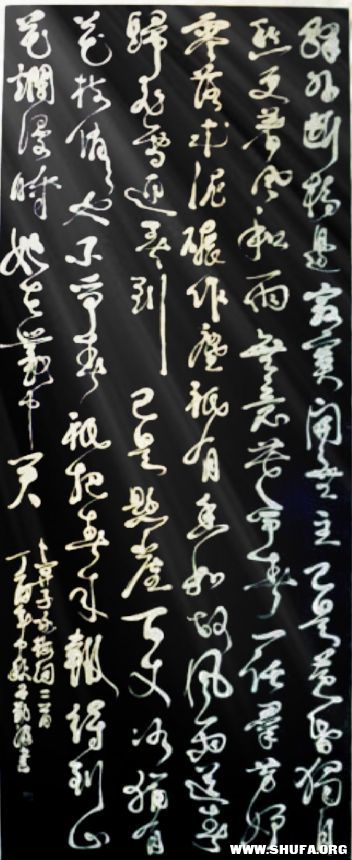 驛外斷橋邊寂寞開無主已是黄昏獨自
愁更著風和雨無意苦争春一任群芳妒
零落成泥碾作塵祇有香如故風雨送春
歸飛雪迎春到已是懸崖百丈冰猶有
花枝俏俏也不争春祇把春來報待到山
花爛漫時她在叢中笑
卜算子咏梅詞二首
丁酉年中秋書
WWW.SHUFA.ORG